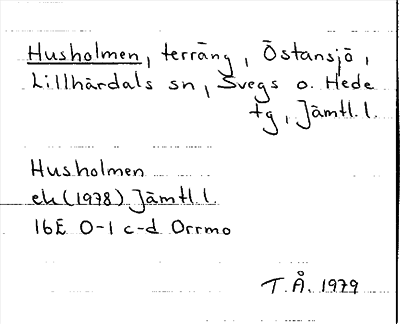 Husholmen, terräng, Östansjö,
Lillhärdals sn, Svegs o. Hede
tg, Jämtl. l.
Husholmen
ek (1978) Jämtl. l.
16E 0-1 c-d Orrmo
T. Å. 1979